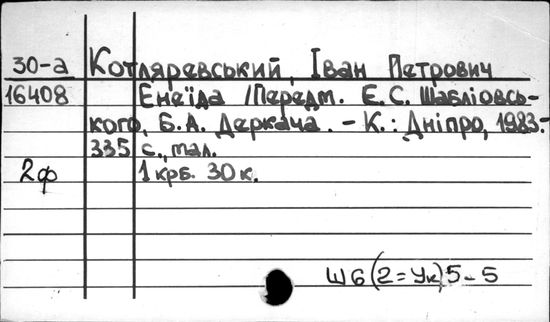 30-а Котляревський, Іван Петрович
16408 Енеїда /Передм. Є.С. Шабліовсь-
кого, Б.А. Деркача. - К.: Дніпро, 1983.-
335 с., мал.
2ф 1 крб. 30 к.
Ш6(2=Ук)5-5